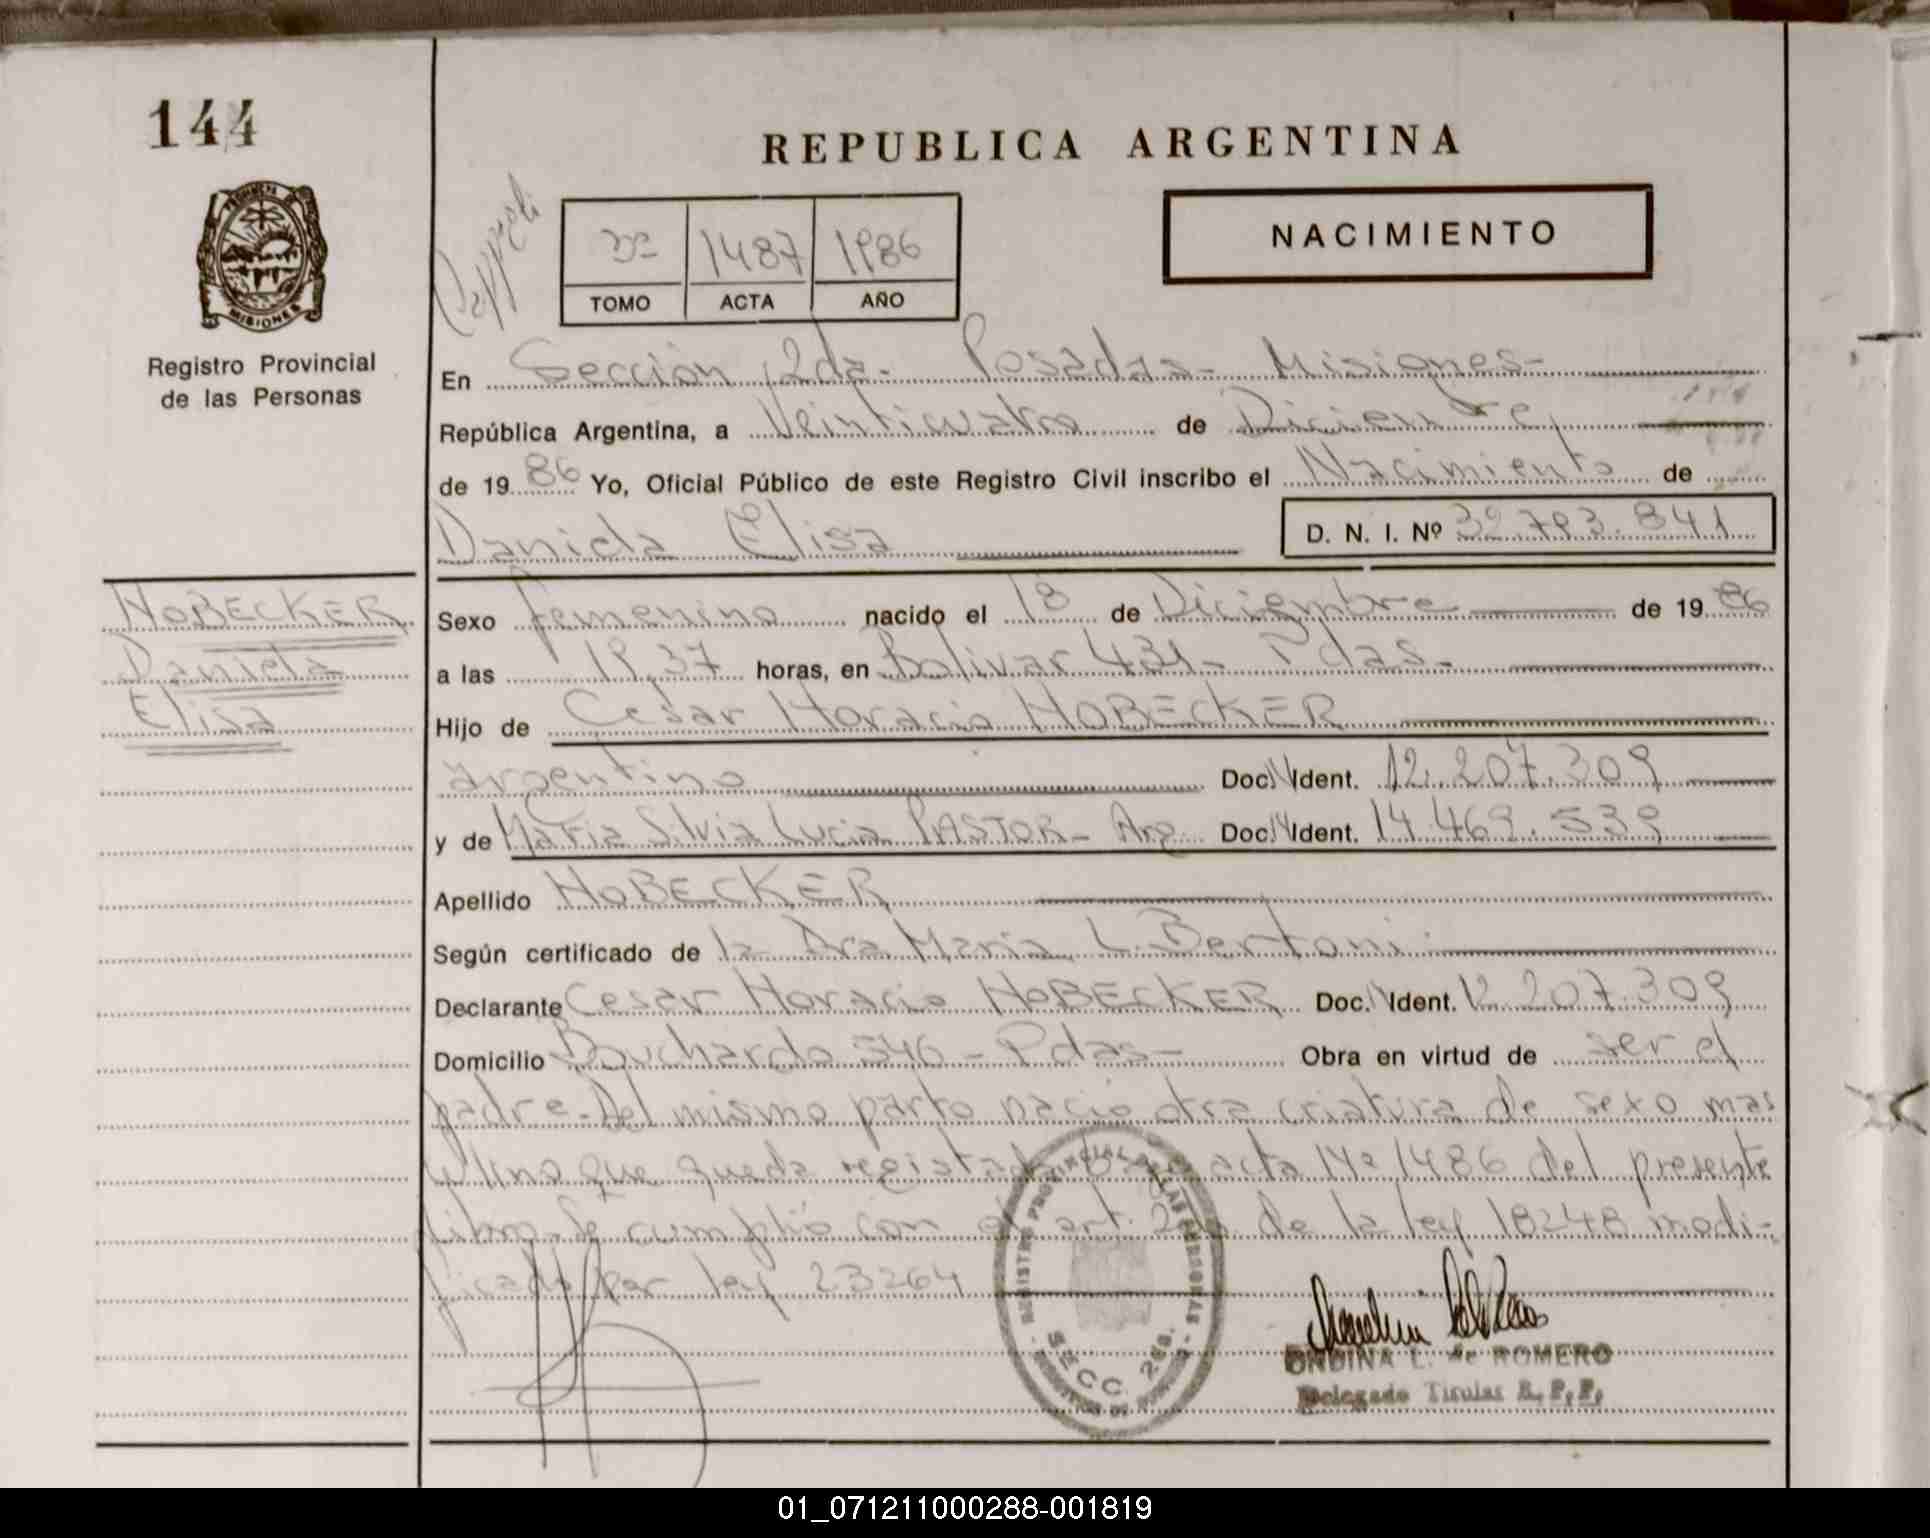 144
REPUBLICA ARGENTINA
1487 1986
TOMO ACTA AÑO
NACIMIENTO
MISIONES
Registro Provincial
de las Personas
En Sección 2da. Posadas - Misiones -
República Argentina, a Veinticuatro de Diciembre,
de 1986 Yo, Oficial Público de este Registro Civil inscribo el Nacimiento de
Daniela Elisa
D. N. I. Nº 32.793.841
HOBECKER
Daniela
Elisa
Sexo femenino nacido el 18 de Diciembre de 1986
a las 19,37 horas, en Bolivar 431 - Pdas.
Hijo de Cesar Horacio HOBECKER
argentino Doc. Ident. 12.207.309
y de Maria Silvia Lucia PASTOR - Arg. Doc. Ident. 14.469.539
Apellido HOBECKER
Según certificado de la Dra Maria L. Bertoni.
Declarante Cesar Horacio HOBECKER Doc. Ident. 12.207.309
Domicilio Bouchardo 546 - Pdas - Obra en virtud de ser el
padre. Del mismo parto nació otra criatura de sexo mas
culino que queda registrada acta Nº 1486 del presente
libro. Se cumplió con el art. de la ley 18248 modi-
ficado por ley 23264
REGISTRO PROVINCIAL DE LAS PERSONAS
SECC. 2da.
ONDINA L. de ROMERO
Delegado Titular R. P. P.
01_071211000288-001819